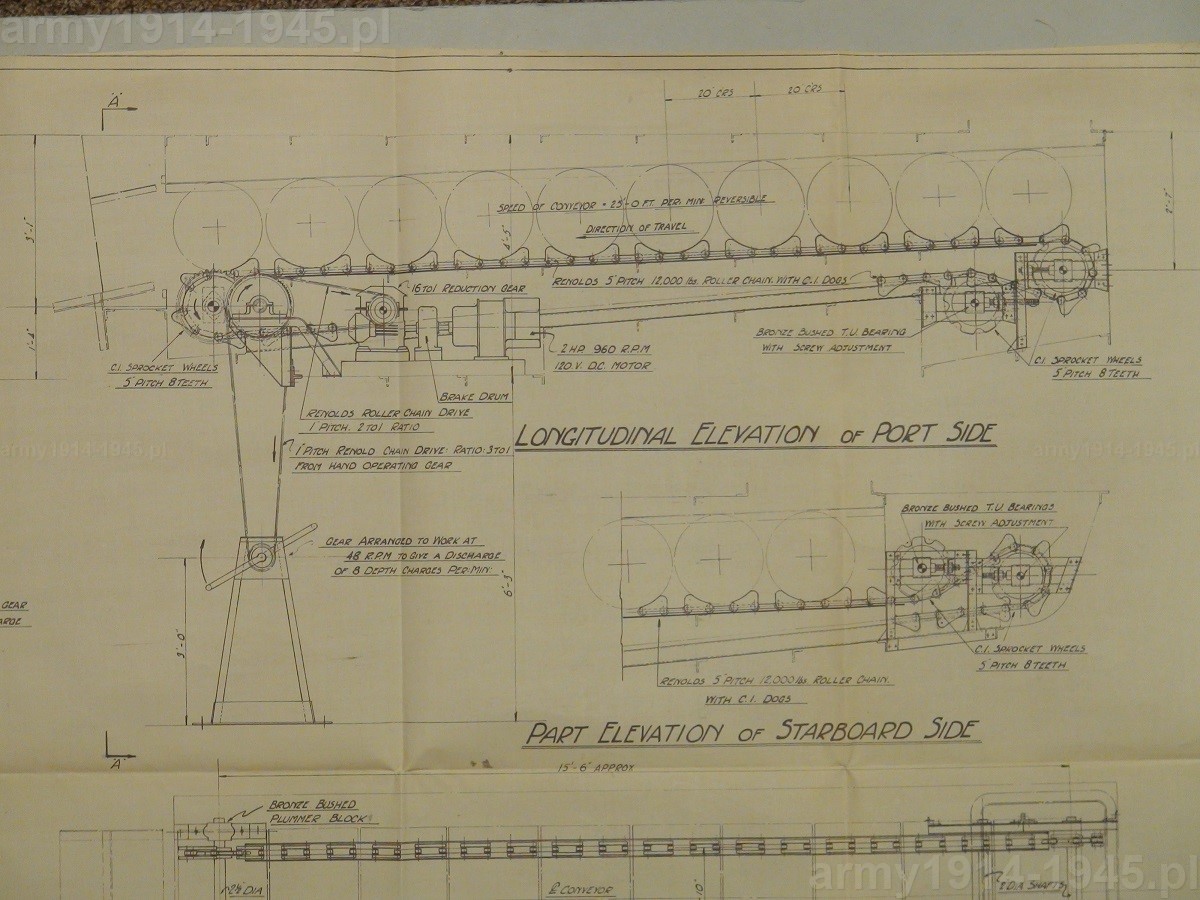 army1914-1945.pl
"A"
20" CRS
20" CRS
SPEED OF CONVEYOR = 25'-0 FT. PER. MIN. REVERSIBLE
DIRECTION OF TRAVEL
4'-5"
2'-7"
3'-1"
1'-4"
16 TO 1 REDUCTION GEAR
RENOLDS 5" PITCH 12,000 lbs. ROLLER CHAIN. WITH C.I. DOGS
BRONZE BUSHED T.U. BEARING
WITH SCREW ADJUSTMENT
C.I. SPROCKET WHEELS
5" PITCH 8 TEETH
2 H.P. 960 R.P.M
120 V. D.C. MOTOR
C.I. SPROCKET WHEELS
5" PITCH 8 TEETH
BRAKE DRUM
RENOLDS ROLLER CHAIN DRIVE
1" PITCH. 2 TO 1 RATIO
LONGITUDINAL ELEVATION OF PORT SIDE
1" PITCH RENOLD CHAIN DRIVE: RATIO: 3 TO 1
FROM HAND OPERATING GEAR
army1914-1945.pl
army1914-1945.pl
BRONZE BUSHED T.U. BEARINGS
WITH SCREW ADJUSTMENT
GEAR ARRANGED TO WORK AT
48 R.P.M TO GIVE A DISCHARGE
OF 8 DEPTH CHARGES PER: MIN:
6'-3"
3'-0"
GEAR
ARGE
C.I. SPROCKET WHEELS
5" PITCH 8 TEETH
RENOLDS 5" PITCH 12,000 lbs. ROLLER CHAIN.
WITH C.I. DOGS
PART ELEVATION OF STARBOARD SIDE
"A"
15'-6" APPROX
BRONZE BUSHED
PLUMMER BLOCKS
2½ DIA
CONVEYOR
10"
2" DIA SHAFTS
army1914-1945.pl